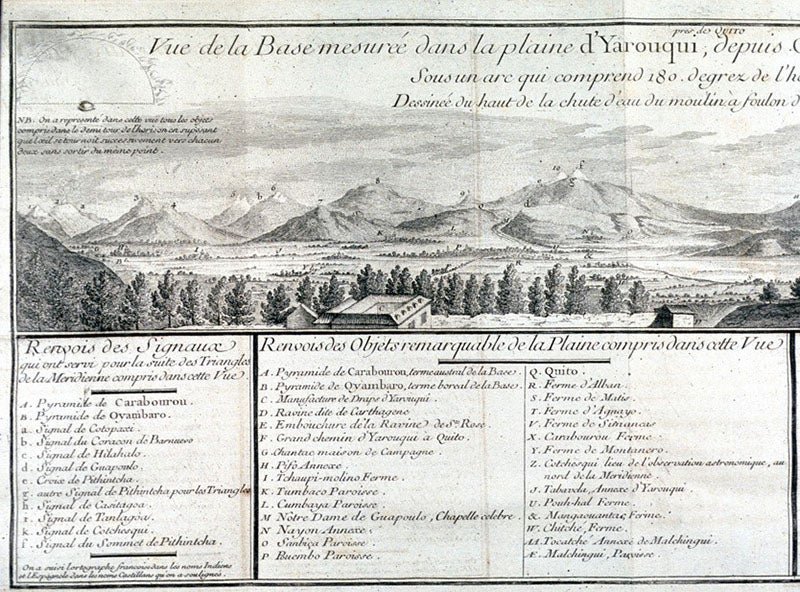 près de QUITO
Vue de la Base mesureé dans la plaine d'Yarouqui, depuis
Sous un arc qui comprend 180. degrez de l'ho
Dessineé du haut de la chute d'eau du moulin à foulon d
NB. On a representé dans cette vue tous les objets
compris dans le demi tour de l'horison en suposant
que l'œil se tournoit successivement vers chacun
deux sans sortir du même point.
Renvois des Signaux
qui ont servi pour la suite des Triangles
de la Meridienne compris dans cette Vuë
A. Pyramide de Carabourou.
B. Pyramide de Oyambaro.
a. Signal de Cotopaxi
b. Signal du Coracon de Barnuevo
c. Signal de Hilahalo
d. Signal de Guapoulo.
e. Croix de Pithintcha.
g. autre Signal de Pithintcha pour les Triangles
h. Signal de Casitagoa
i. Signal de Tanlagoa.
k. Signal de Cotchesqui.
f. Signal du Sommet de Pithintcha.
On a suivi l'ortographe francoise dans les noms Indiens
et l'Espagnole dans les noms Castillans qu'on a soulignés.
Renvois des Objets remarquable de la Plaine compris dans cette Vuë
A. Pyramide de Carabourou, terme austral de la Base.
B. Pyramide de Oyambaro, terme boreal de la Base.
C. Manufacture de Draps d'Yarouqui.
D. Ravine dite de Carthagene
E. Embouchure de la Ravine de Sta. Rose.
F. Grand chemin d'Yarouqui à Quito.
G. Chantac maison de Campagne.
H. Pifo Annexe.
I. Tchaupi-molino Ferme.
K. Tumbaco Paroisse.
L. Cumbaya Paroisse
M. Notre Dame de Guapoulo, Chapelle celebre.
N. Nayon Annexe.
O. Sanbiça Paroisse
P. Puembo Paroisse.
Q. Quito.
R. Ferme d'Alban.
S. Ferme de Matis
T. Ferme d'Agnayo.
V. Ferme de Simancas
X. Carabourou Ferme.
Y. Ferme de Montanero.
Z. Cotchesqui lieu de l'observation astronomique, au
nord de la Meridienne.
J. Tabavela, Annexe d'Yarouqui
U. Pouh-hal Ferme.
&. Mangaouantac, Ferme.
W. Chitché, Ferme.
AA. Tocatche Annexe de Malchingui.
Æ. Malchingui, Paroisse.